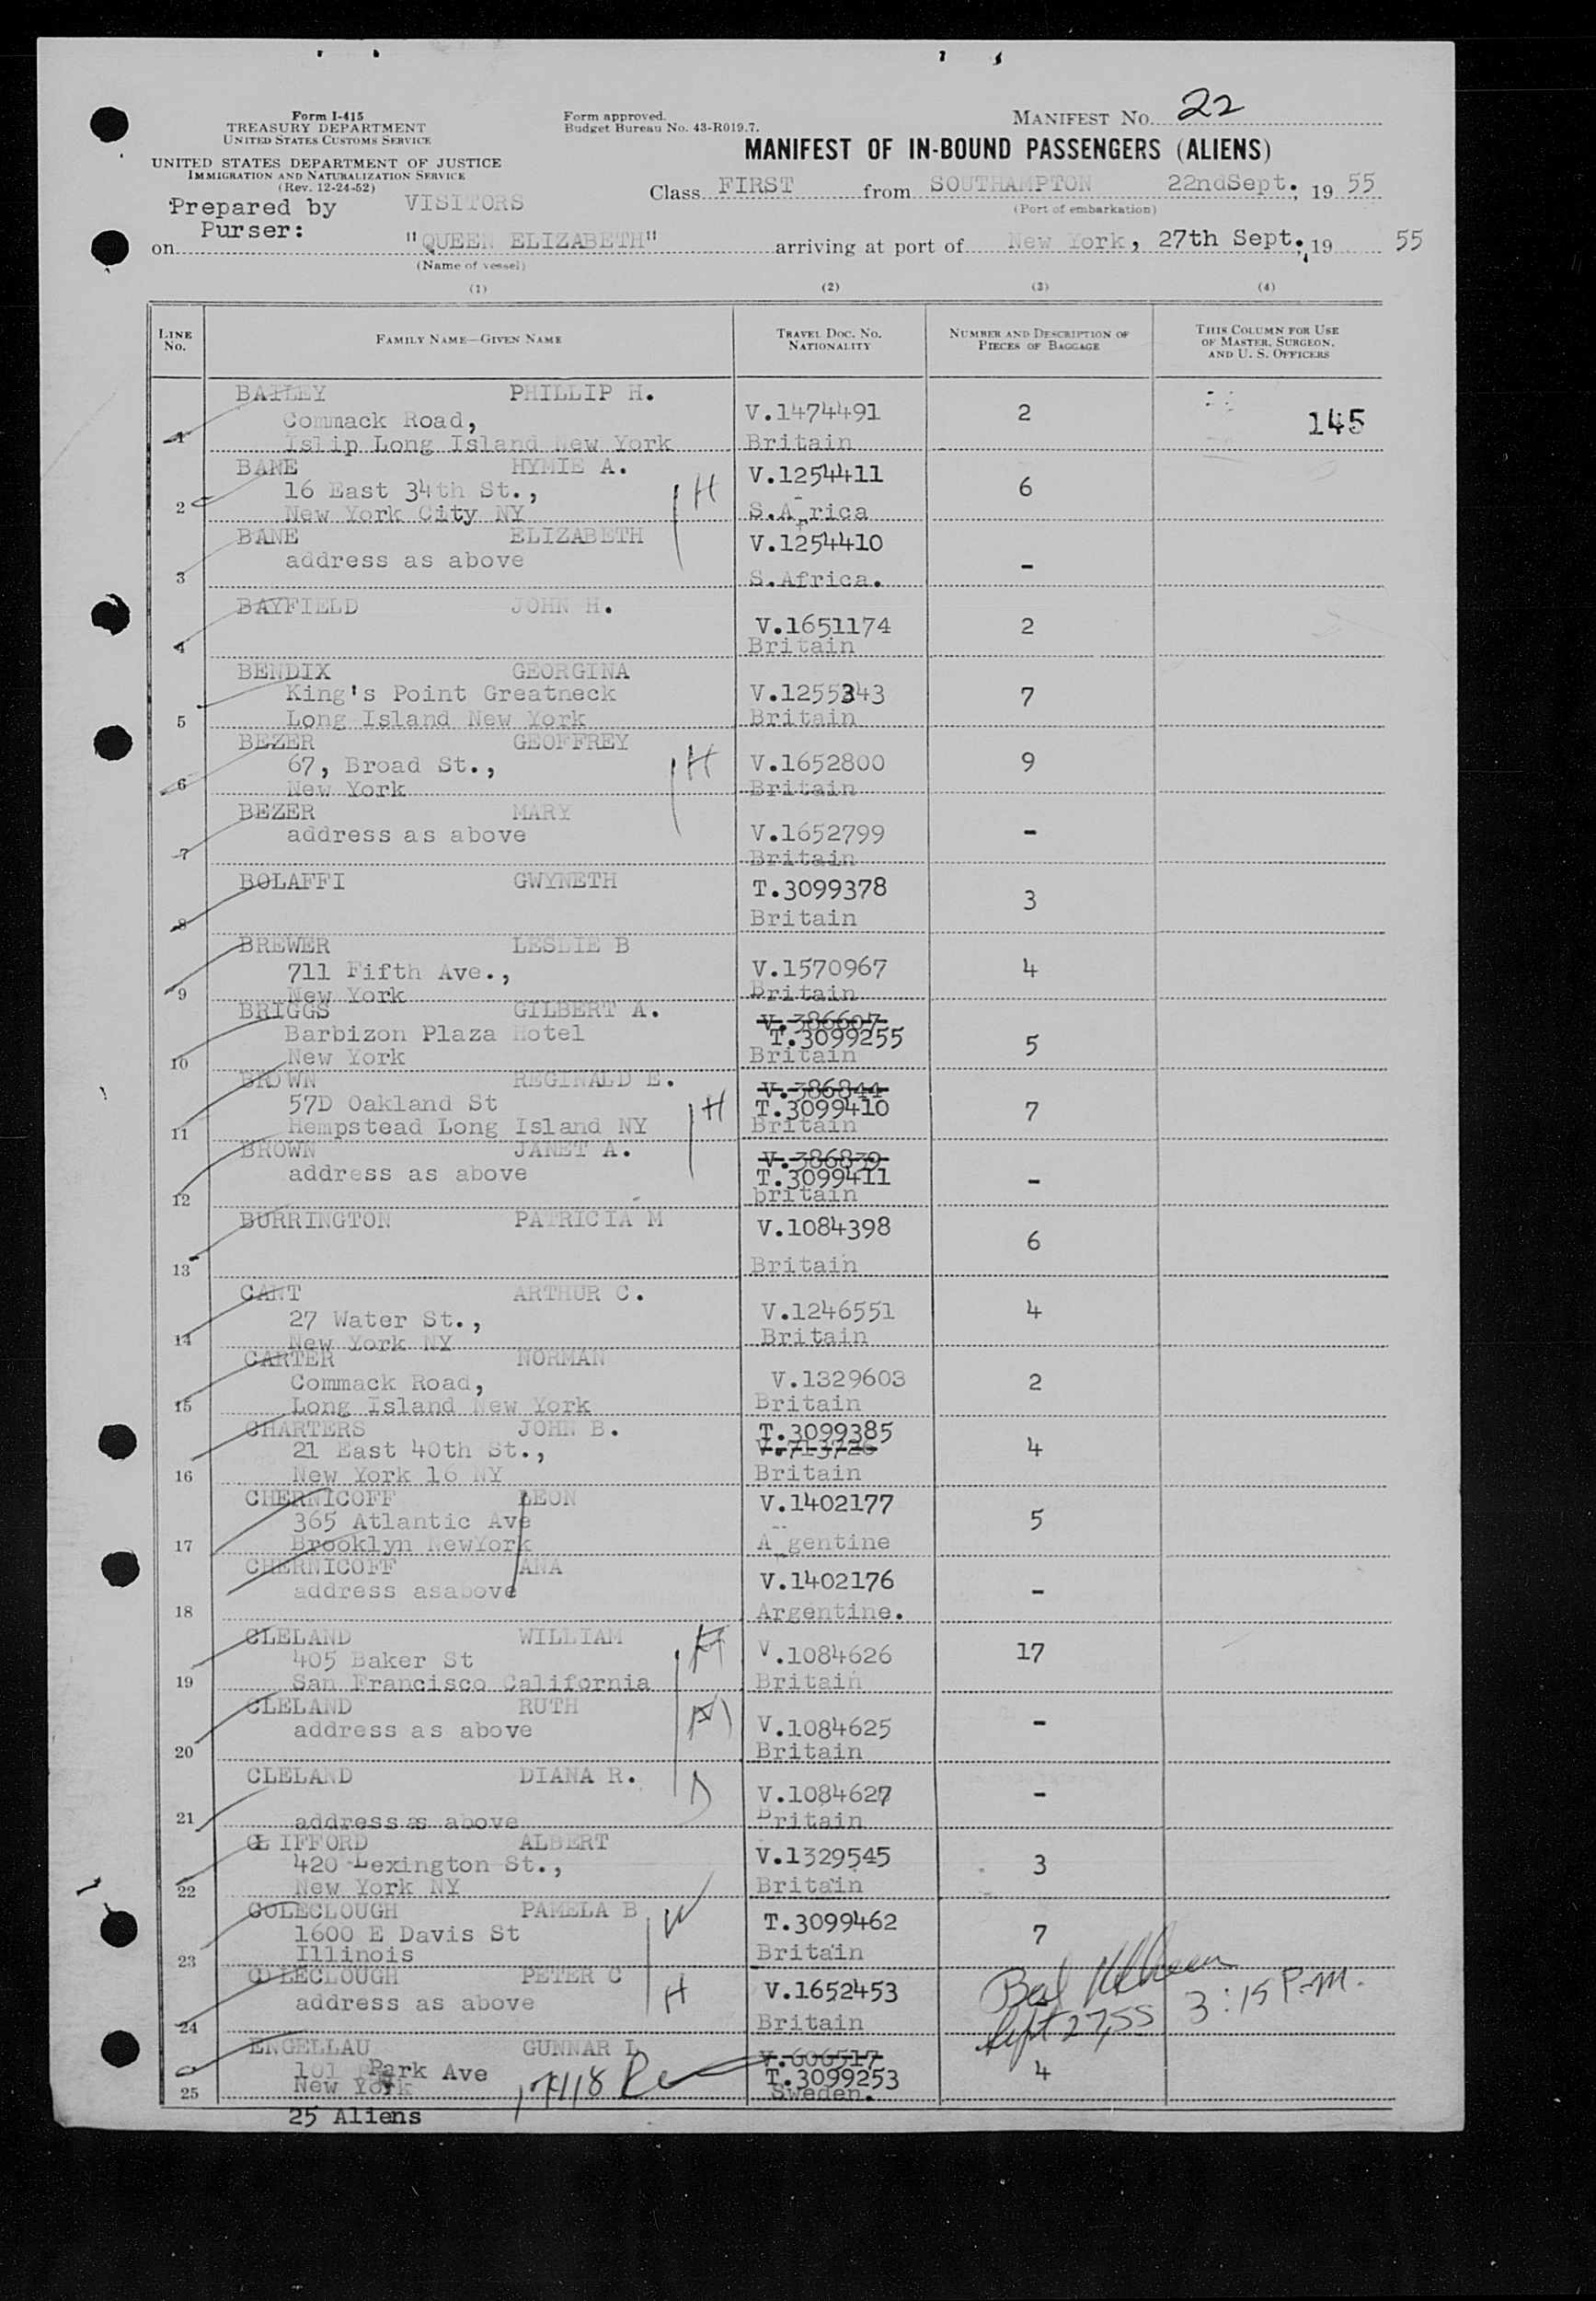 Form I-415
TREASURY DEPARTMENT
UNITED STATES CUSTOMS SERVICE
UNITED STATES DEPARTMENT OF JUSTICE
IMMIGRATION AND NATURALIZATION SERVICE
(Rev. 12-24-52)
Form approved.
Budget Bureau No. 43-R019.7.
MANIFEST NO. 22
MANIFEST OF IN-BOUND PASSENGERS (ALIENS)
Class FIRST from SOUTHAMPTON 22ndSept., 19 55
(Port of embarkation)
Prepared by VISITORS
Purser:
on "QUEEN ELIZABETH" arriving at port of New York, 27th Sept., 19 55
(Name of vessel)
(1) (2) (3) (4)
LINE NO. FAMILY NAME—GIVEN NAME TRAVEL DOC. NO. NATIONALITY NUMBER AND DESCRIPTION OF PIECES OF BAGGAGE THIS COLUMN FOR USE OF MASTER, SURGEON, AND U. S. OFFICERS
BAILEY PHILLIP H.
Commack Road, V.1474491 2 145
1 Islip Long Island New York Britain
BANE HYMIE A. V.1254411
16 East 34th St., H 6
2 New York City NY S.Africa
BANE ELIZABETH V.1254410
address as above -
3 S.Africa.
BAYFIELD JOHN H.
V.1651174 2
4 Britain
BENDIX GEORGINA
King's Point Greatneck V.1255343 7
5 Long Island New York Britain
BEZER GEOFFREY
67, Broad St., H V.1652800 9
6 New York Britain
BEZER MARY
address as above V.1652799 -
7 Britain
BOLAFFI GWYNETH T.3099378
8 Britain 3
BREWER LESLIE B
711 Fifth Ave., V.1570967 4
9 New York Britain
BRIGGS GILBERT A. V.386607
Barbizon Plaza Hotel T.3099255 5
10 New York Britain
BROWN REGINALD E. V.386844
57D Oakland St H T.3099410 7
11 Hempstead Long Island NY Britain
BROWN JANET A. V.386839
address as above T.3099411 -
12 britain
BURRINGTON PATRICIA M V.1084398
6
13 Britain
CANT ARTHUR C.
27 Water St., V.1246551 4
14 New York NY Britain
CARTER NORMAN
Commack Road, V.1329603 2
15 Long Island New York Britain
CHARTERS JOHN B. T.3099385
21 East 40th St., V.713726 4
16 New York 16 NY Britain
CHERNICOFF LEON V.1402177
365 Atlantic Ave 5
17 Brooklyn NewYork A gentine
CHERNICOFF ANA V.1402176
address asabove -
18 Argentine.
CLELAND WILLIAM H
405 Baker St V.1084626 17
19 San Francisco California Britain
CLELAND RUTH
address as above V.1084625 -
20 Britain
CLELAND DIANA R.
D V.1084627 -
21 address as above Britain
CLIFFORD ALBERT
420 Lexington St., V.1329545 3
22 New York NY Britain
COLECLOUGH PAMELA B W
1600 E Davis St T.3099462 7
23 Illinois Britain
COLECLOUGH PETER C
address as above H V.1652453
24 Britain
Sept 27,55 3:15 P.M.
ENGELLAU GUNNAR L V.606517
101 Park Ave T.3099253 4
25 New York Sweden.
25 Aliens